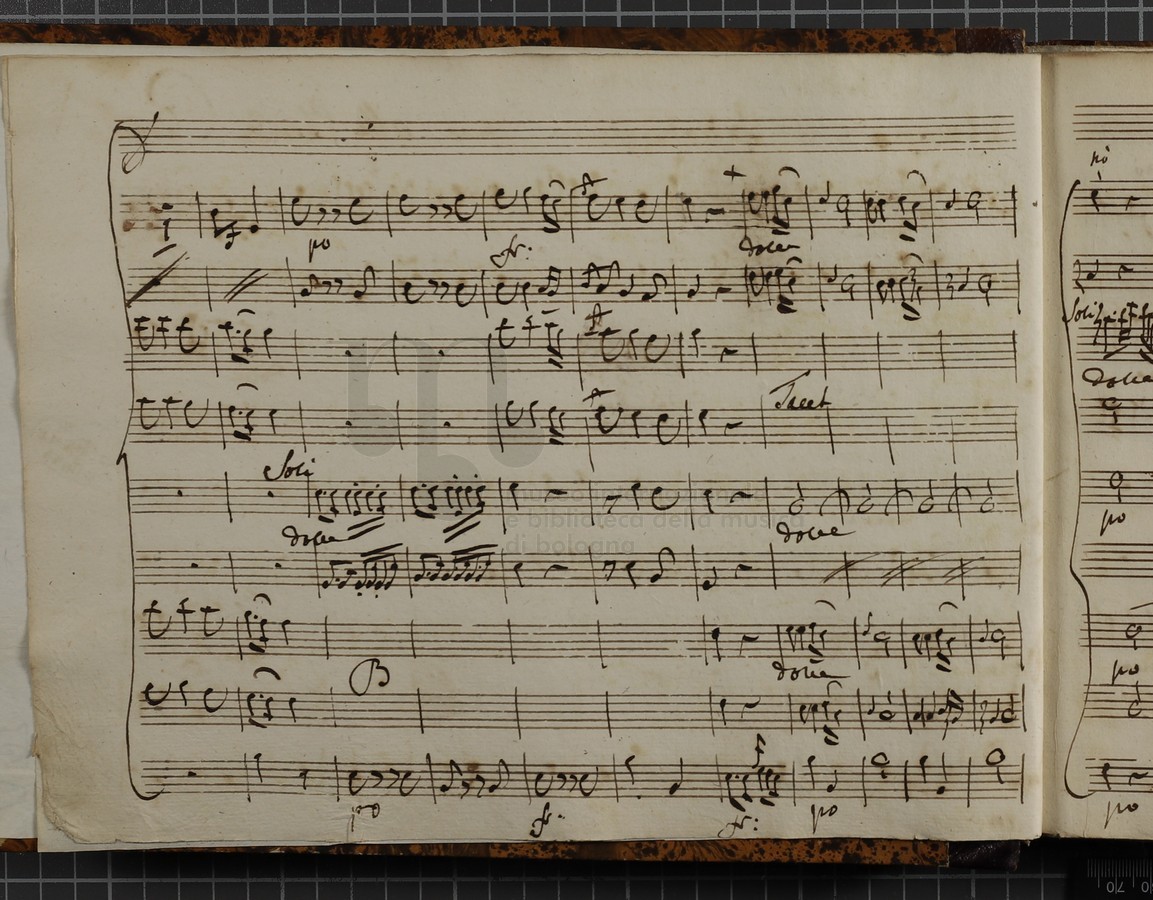 po
po
fr:
dolce
Soli
dolce
Tacet
Soli
dolce
e biblioteca della musica
di bologna
dolce
po
dolce
B
po
f
po
fr:
fr:
po
po
70